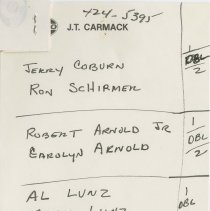 424-5395
J.T. CARMACK
JERRY COBURN
RON SCHIRMER
1
DBL
2
ROBERT ARNOLD JR
CAROLYN ARNOLD
1
DBL
2
AL LUNZ
LUNZ
1
DBL